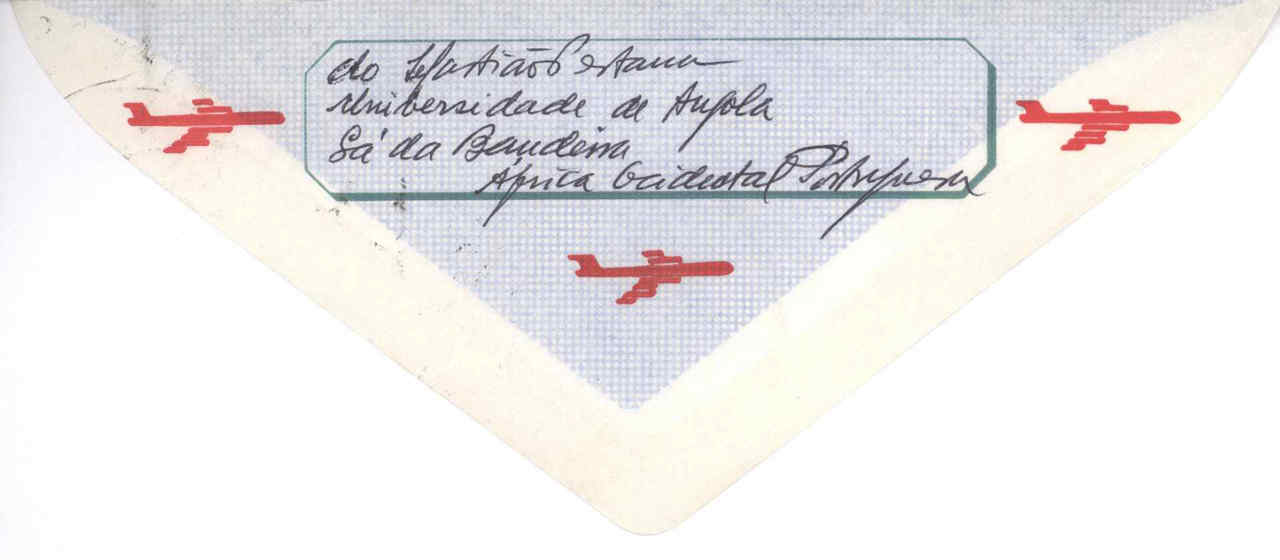 do Sebastião Pestana
Universidade de Angola
Sá da Bandeira
África Ocidental Portuguesa